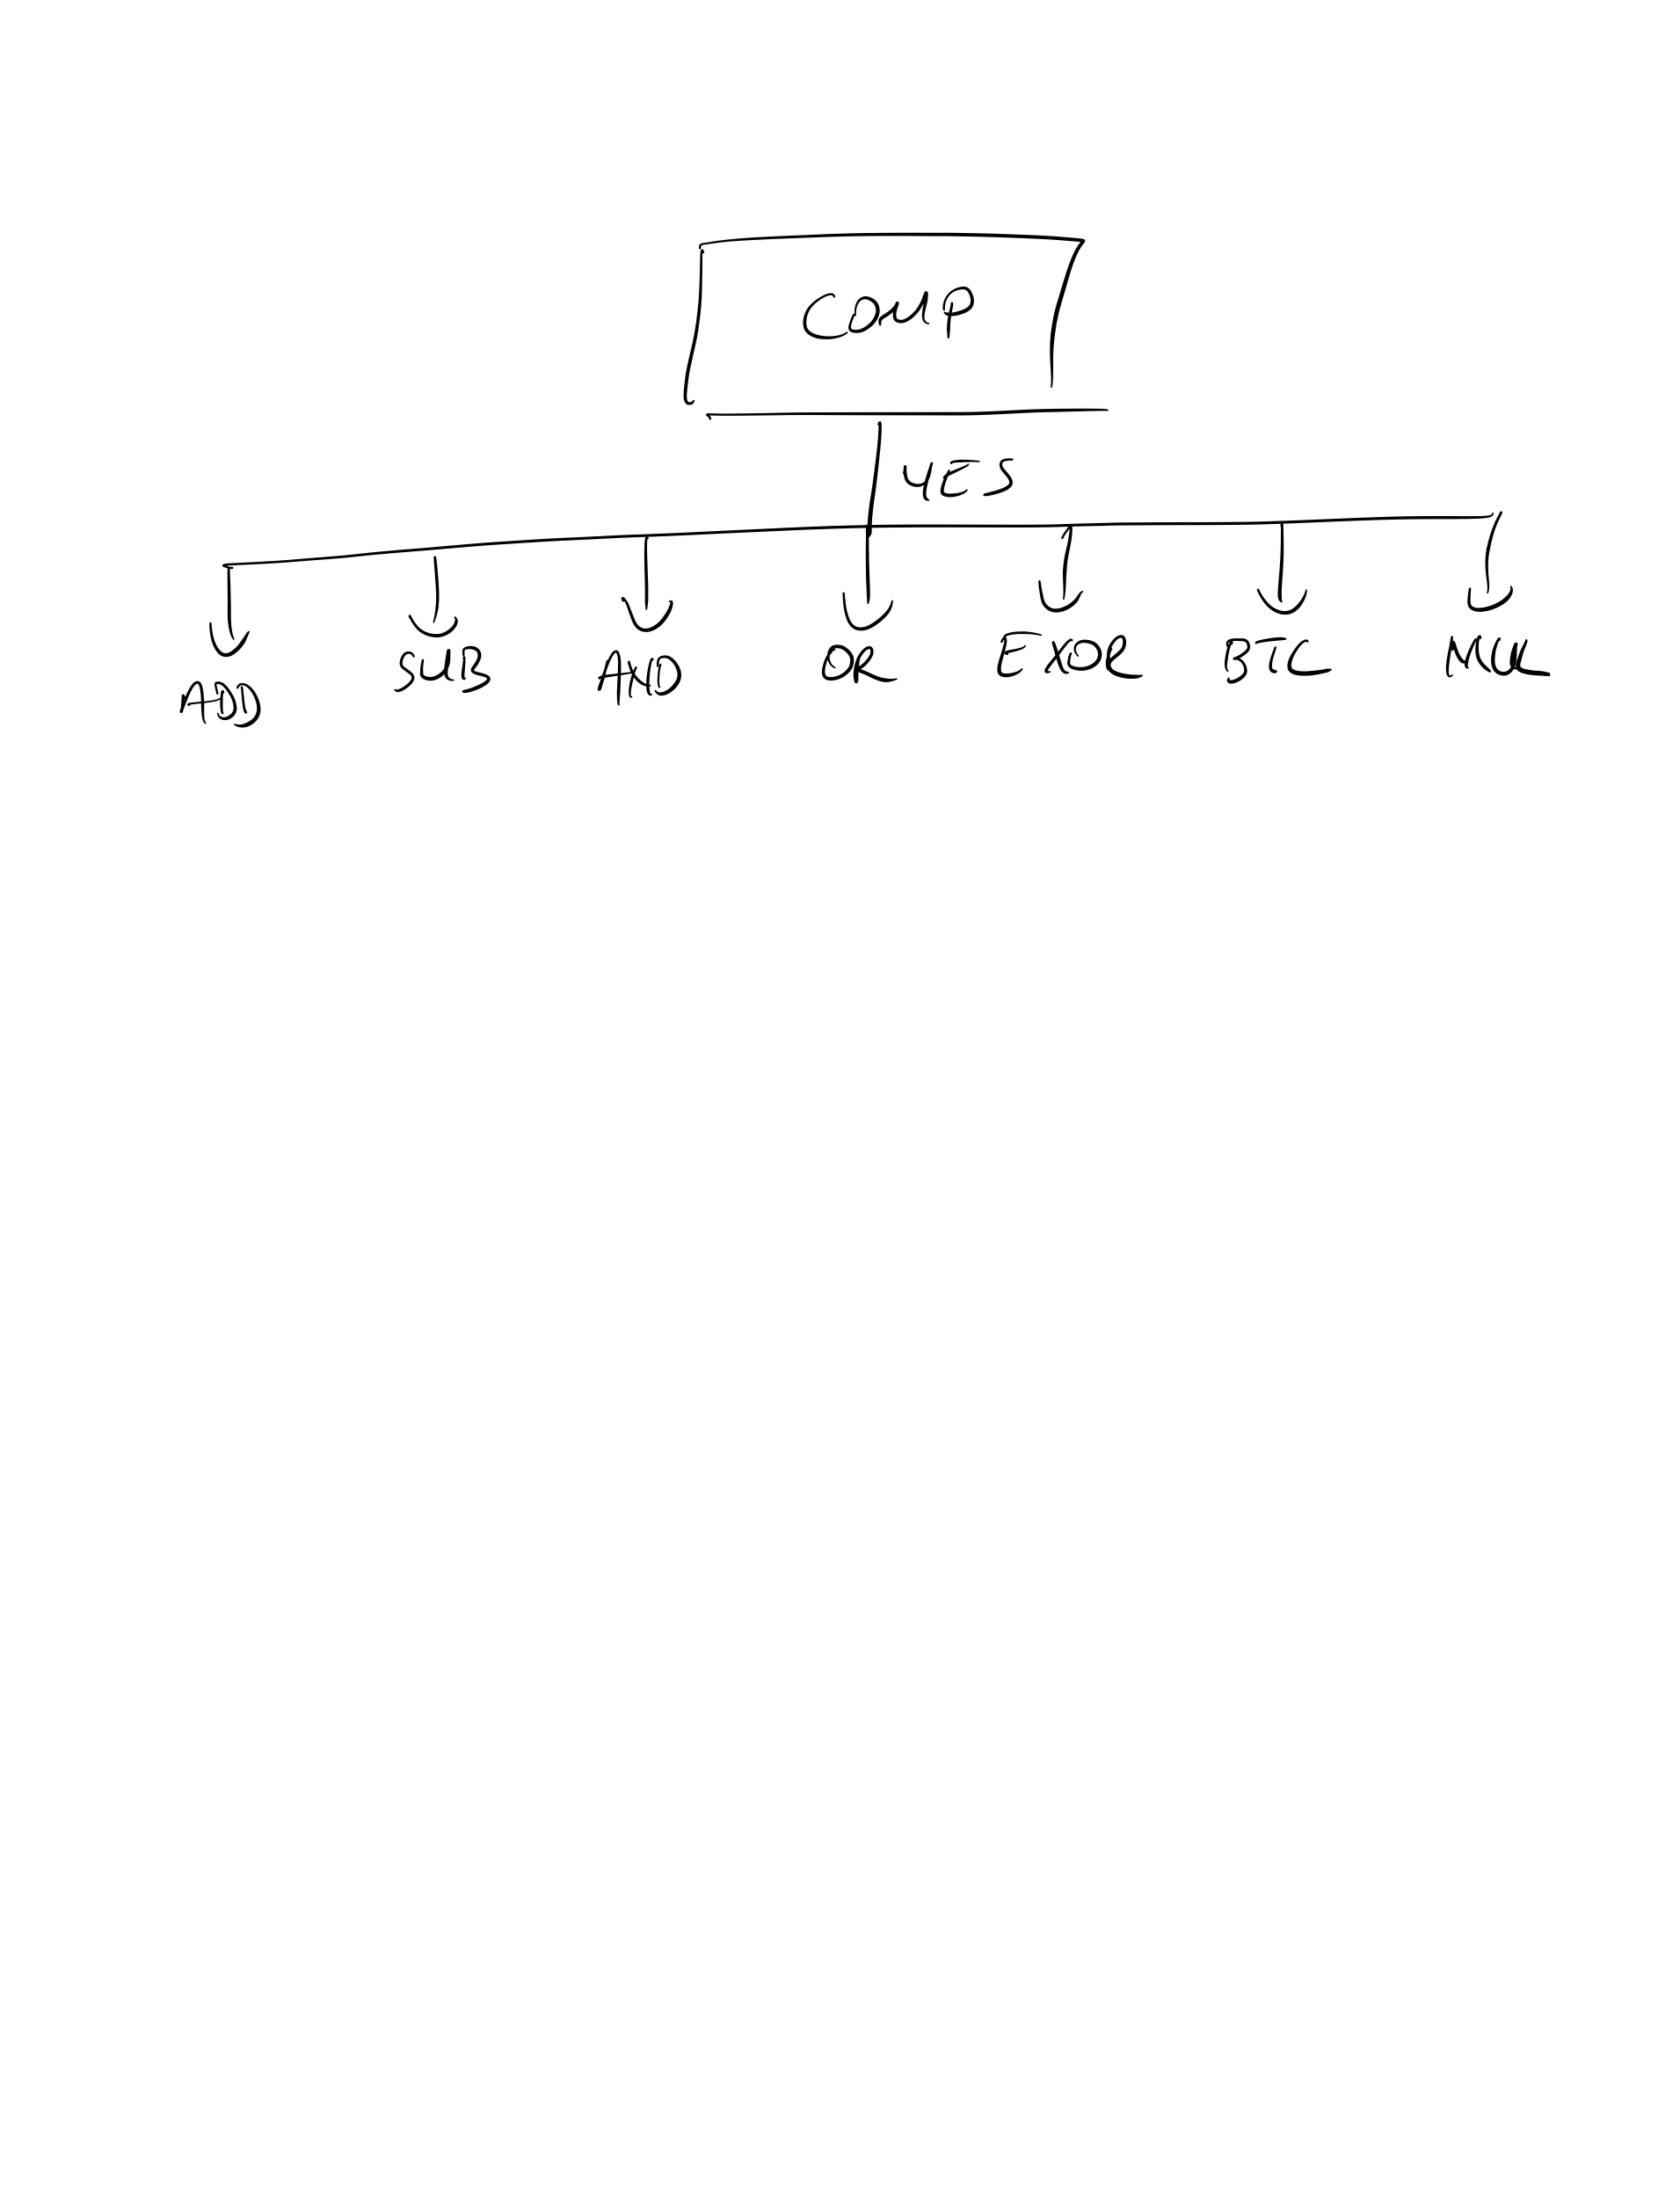 COMP
YES
ADD SUB AND OR EXOR BIC MUL